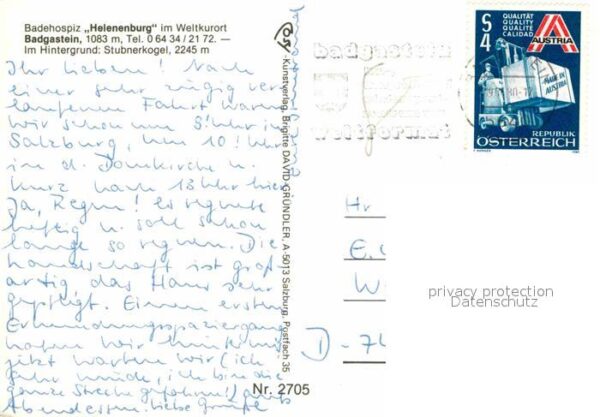 Badehospiz „Helenenburg" im Weltkurort
Badgastein, 1083 m, Tel. 0 64 34 / 21 72. —
Im Hintergrund: Stubnerkogel, 2245 m
Ihr Lieben! Nach
einer sehr zügig ver
laufenen Fahrt waren
wir schon um Uhr in
Salzburg, um 10! Uhr
in d. Domkirche u.
kurz nach 13 Uhr hier
Ja, Regen! es regnete
heftig u. soll schon
lange so regnen. Die
Landschaft ist groß
artig das Haus sehr
gepflegt. Einen ersten
Erkundungsspaziergang
haben wir hinter uns
jetzt warten wir (ich
sehr müde, ich bin die
ganze Strecke gefahren!) aufs
Abendessen. Liebe Grüße
Kunstverlag, Brigitte DAVID-GRÜNDLER, A-5013 Salzburg, Postfach 35
Nr. 2705
badgastein
weltformat
S 4
QUALITÄT
QUALITY
QUALITÉ
CALIDAD
A
AUSTRIA
MADE IN
AUSTRIA
REPUBLIK
ÖSTERREICH
Hr
E.
W
D - 74
privacy protection
Datenschutz